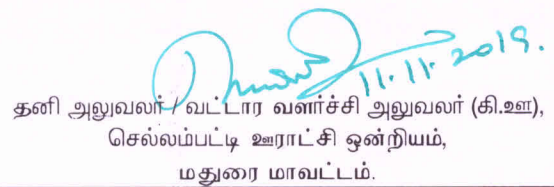 11.11.2019.
தனி அலுவலர் / வட்டார வளர்ச்சி அலுவலர் (கி.ஊ),
செல்லம்பட்டி ஊராட்சி ஒன்றியம்,
மதுரை மாவட்டம்.